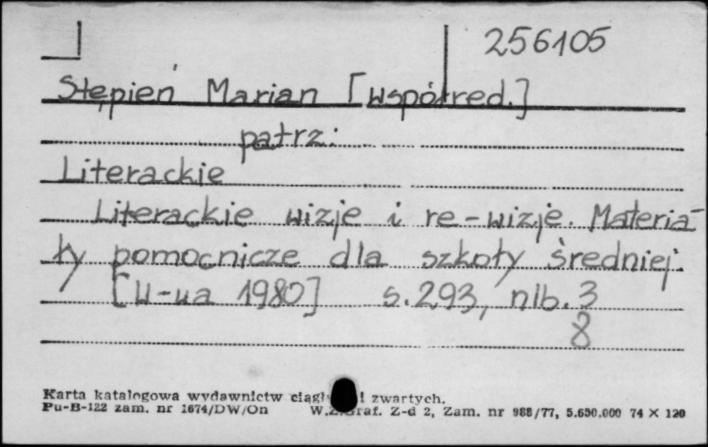 256105
Stępień Marian [współred.]
patrz:
Literackie
Literackie wizje i re-wizje. Materia-
ły pomocnicze dla szkoły średniej.
[W-wa 1980] s.293, nlb.3
8
Karta katalogowa wydawnictw i zwartych.
Pu-B-122 zam. nr 1674/DW/On W.Z.Graf. Z-d 2, Zam. nr 988/77, 5.650.000 74 × 120